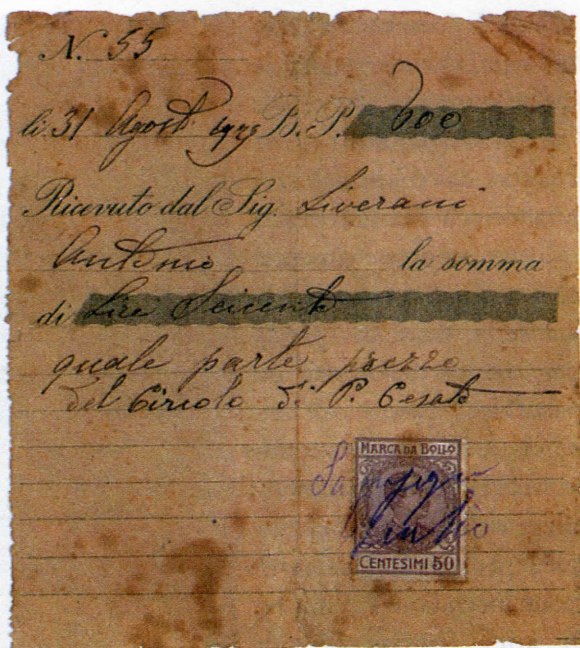 N. 55
li 31 Agost 1925 B. P. 600
Ricevuto dal Sig. Liverani
Antonio la somma
di Lire Seicento
quale parte prezzo
del Circolo di P. Cesato
MARCA DA BOLLO
CENTESIMI 50